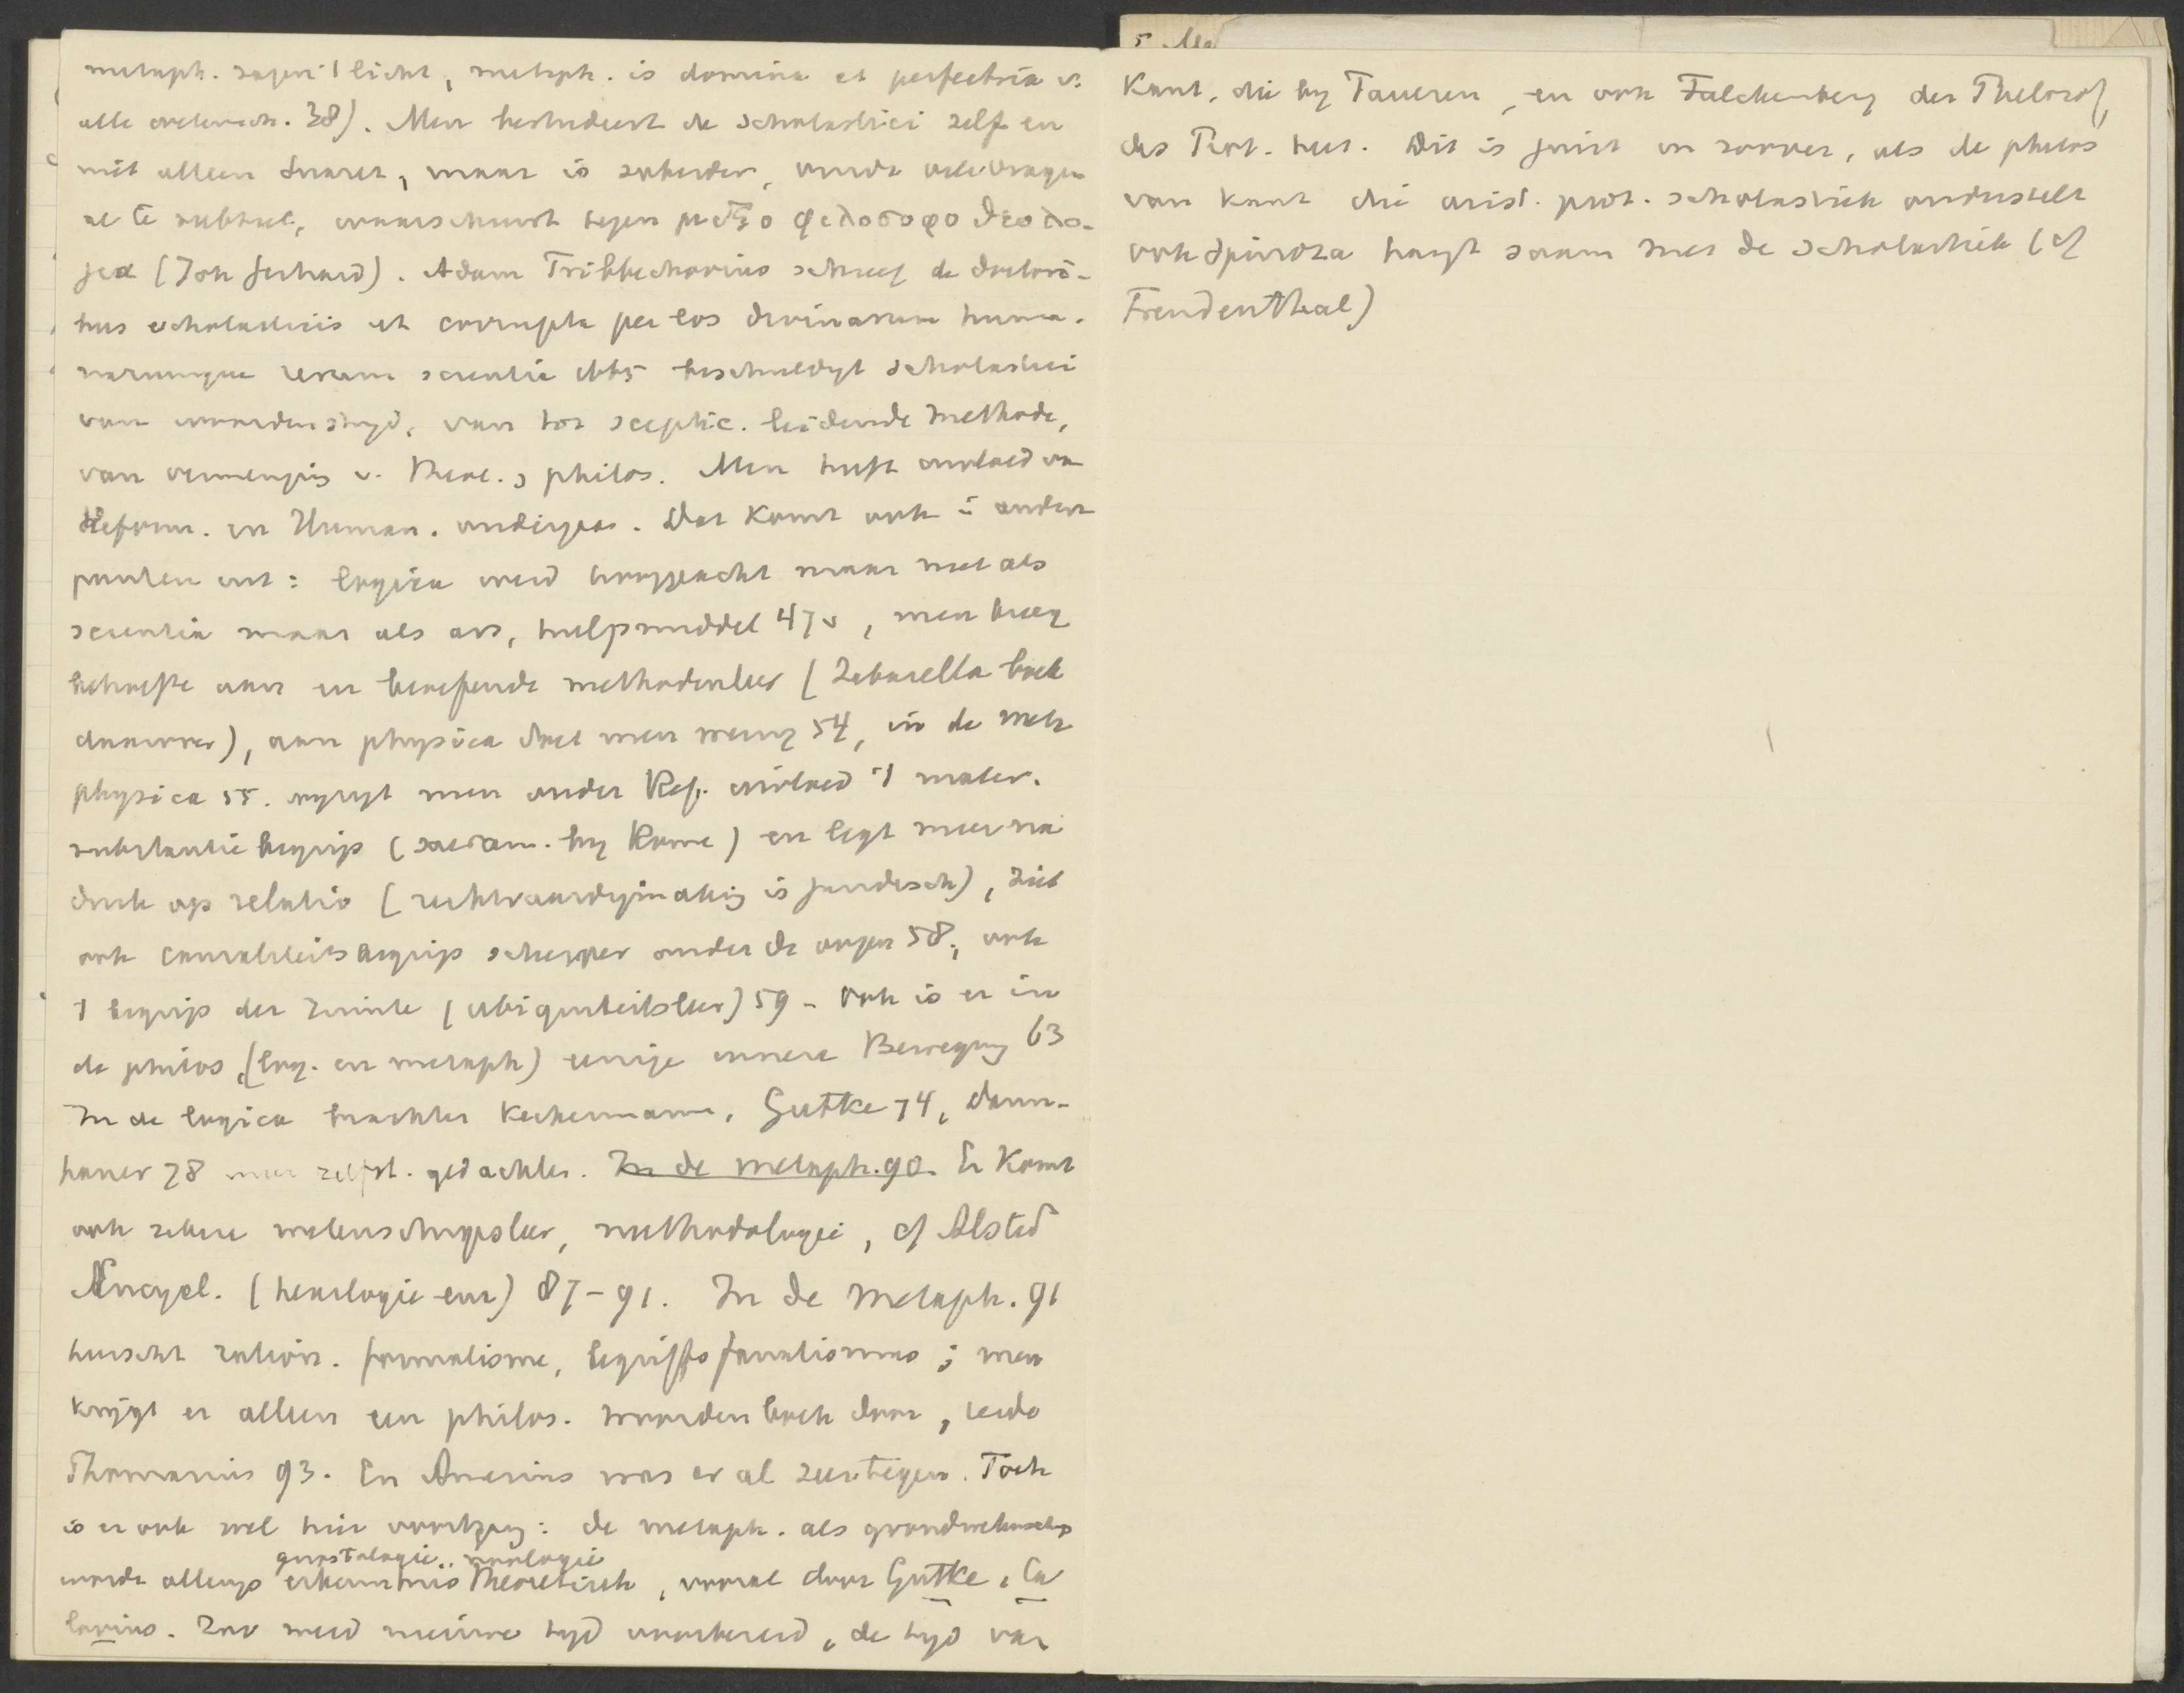 metaph. tegen 't licht, metaph. is domina et perfectrix v.
alle wetensch. 38). Men bestudeert de scholastici zelf en
niet alleen Suarez, maar is soberder, vindt vele vragen
al te subtiel, waarschuwt tegen μιξο φιλοσοφο θεολο-
gia (Joh Gerhard). Adam Tribbechovius schreef de doctori-
bus scholasticis et corrupta per eos divinarum huma-
narumque rerum scientia 1665 beschuldigt scholastici
van woordenstryd, van tot sceptic. leidende methode,
van vermenging v. theol. & philos. Men heeft invloed van
Reform. en Human. ondergaan. Dat komt ook in andere
punten uit: logica werd hooggeacht maar niet als
scientia maar als ars, hulpmiddel 47v, men kreeg
behoefte aan en beoefende methodenleer (Zabarella boek
daarover), aan physica deed men weinig 54, in de meta
physica 55. wyzigt men onder Ref. invloed 't mater.
substantie begrip (sacram. by Rome) en legt meer na
druk op relatio (rechtvaardigmaking is juridisch), ziet
ook causaliteitsbegrip scherper onder de oogen 58, ook
't begrip der ruimte (ubiquiteitsleer) 59 - Ook is er in
de philos. (log. en metaph) eenige innere Bewegung 63
In de logica brachten Keckermann, Gutke 74, Dann-
hauer 78 meer zelfst. gedachten. In de metaph. 90. Er komt
ook zekere wetenschapsleer, methodologie, cf Alsted
Encycl. (hexilogie enz) 87-91. In de Metaph. 91
heerscht ration. formalisme, begriffsfanatismus; men
krijgt er alleen een philos. woordenboek door, zeide
Thomasius 93. En Amesius was er al zeer tegen. Toch
is er ook wel hier voortgang: de metaph. als grondwetenschap
gnostologie, noologie
wordt allengs erkenntnis theoretisch, vooral door Gutke, Ca
lovius. Zoo werd nieuwe tyd voorbereid, de tyd van
Kant, die by Taueren, en ook Falckenberg der Philosof,
das Prot. heet. Dit is juist in zoover, als de philos
van Kant die arist. prot. scholastiek onderstelt
ook Spinoza hangt saam met de scholastiek (cf
Freudenthal)